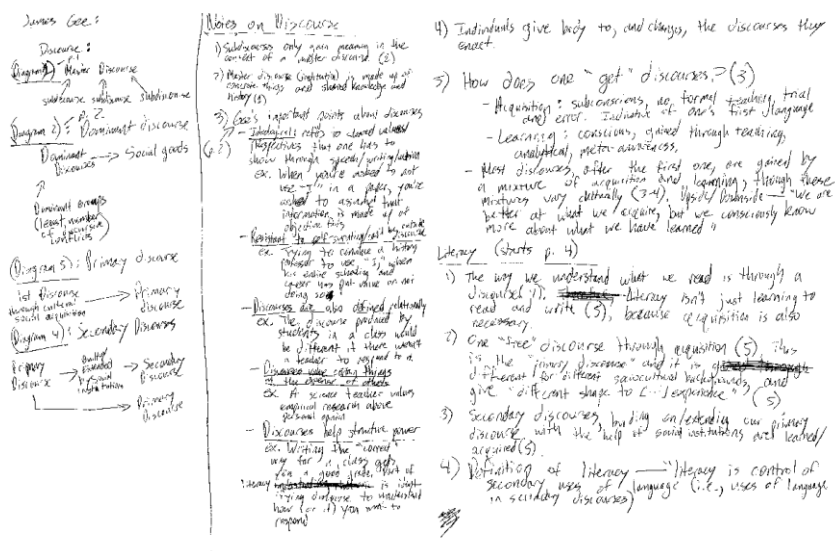 James Gee:
Discourse:
Diagram 1) - Master Discourse
subdiscourse subdiscourse subdiscourse
p. 2
Diagram 2): Dominant discourse
Dominant Discourses → Social goods
Dominant Groups
(least number
of discursive
conflicts)
Diagram 3: Primary discourse
1st Discourse → Primary
through cultural discourse
social acquisition
Diagram 4: Secondary Discourses
Primary → → Secondary
Discourse Extended Discourse
by social
institutions
→ Primary
Discourse
Notes on Discourse
1) Subdiscourses only gain meaning in the
context of a master discourse (2)
2) Master discourse (institution) is made up of
concrete things and shared knowledge and
history (2)
3) Gee's important points about discourses
(p. 2) - Ideological: refers to shared values/
perspectives that one has to
show through speech/writing/action
ex. When you're asked to not
use "I" in a paper, you're
asked to assume that
information is made up of
objective facts
- Resistant to self-scrutiny/ by outside
discourse
ex. Trying to convince a history
professor to use "I," when
his entire schooling and
career has put value on not
doing so
- Discourses are also defined relationally
ex. The discourse produced by
students in a class would
be different if there weren't
a teacher to respond to
- Discourses value certain things
at the expense of others
ex. A science teacher values
empirical research above
personal opinion
- Discourses help structure power
ex. Writing the "correct"
way for a class gets
you a good grade. Part of
literacy is
discourse to understand
how (or if) you want to
respond
4) Individuals give body to, and changes, the discourses they
enact.
5) How does one "get" discourses? (3)
- Acquisition: subconscious, no formal teaching, trial
and error. Indicative of one's first language
- Learning: conscious, gained through teaching,
analytical, meta-awareness,
- Most discourses, after the first one, are gained by
a mixture of acquisition and learning, though these
mixtures vary culturally (3-4). Upside/Downside - "We are
better at what we acquire, but we consciously know
more about what we have learned"
Literacy (starts p. 4)
1) The way we understand what we read is through a
discourse Literacy isn't just learning to
read and write (5), because acquisition is also
necessary.
2) One "free" discourse through acquisition (5) this
is the "primary discourse" and it is
different for different sociocultural backgrounds, and
give "different shape to [...] experience" (5)
3) Secondary discourses, building on/extending our primary
discourse with the help of social institutions are learned/
acquired (5).
4) Definition of literacy — "literacy is control of
secondary uses of language (i.e., uses of language
in secondary discourses)